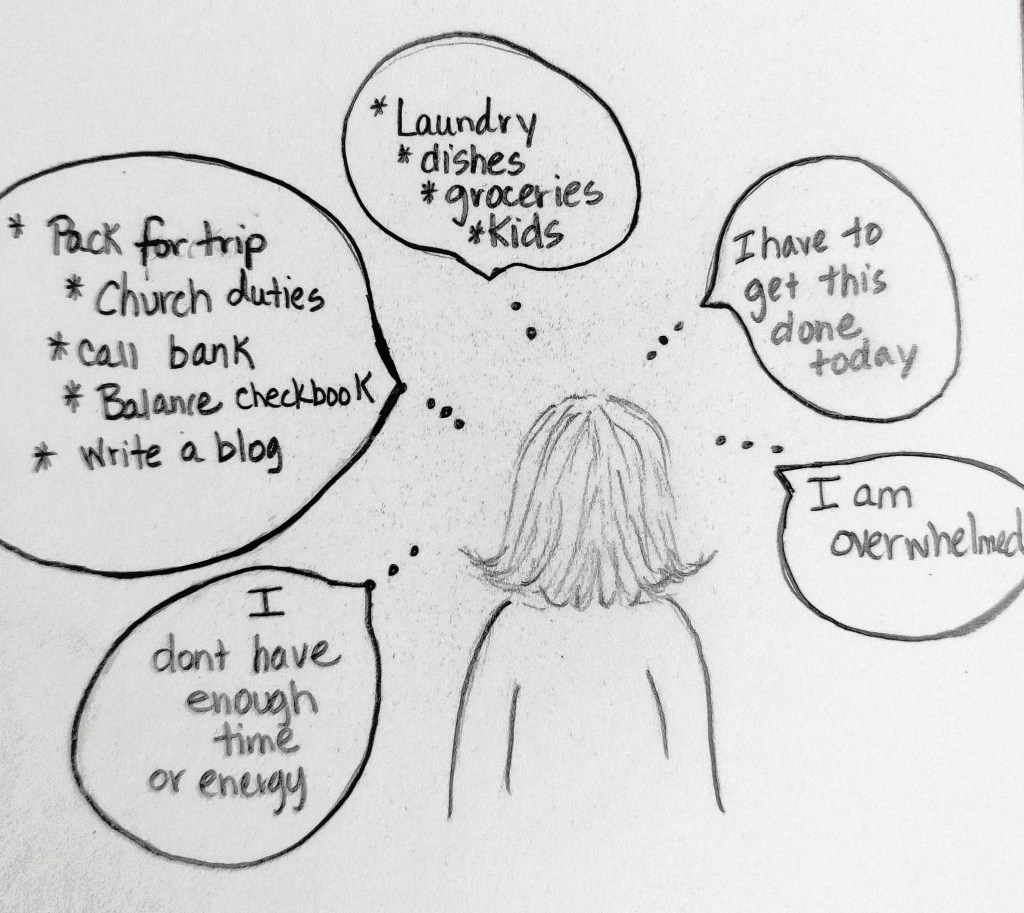 * Laundry
* dishes
* groceries
* Kids
* Pack for trip
* Church duties
* Call bank
* Balance checkbook
* Write a blog
I have to
get this
done
today
I am
overwhelmed
I
dont have
enough
time
or energy